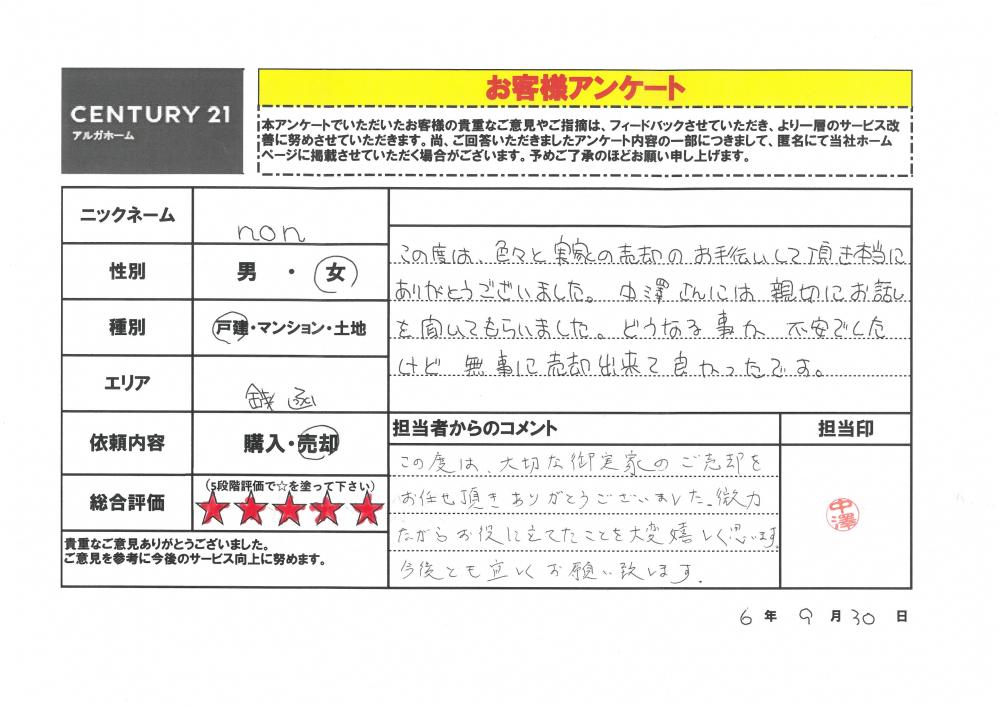 CENTURY 21
アルガホーム
お客様アンケート
本アンケートでいただいたお客様の貴重なご意見やご指摘は、フィードバックさせていただき、より一層のサービス改
善に努めさせていただきます。尚、ご回答いただきましたアンケート内容の一部につきまして、匿名にて当社ホーム
ページに掲載させていただく場合がございます。予めご了承のほどお願い申し上げます。
ニックネーム
non
性別
男 ・ 女
種別
戸建・マンション・土地
エリア
銭函
依頼内容
購入・売却
総合評価
(5段階評価で☆を塗って下さい)
★★★★★
貴重なご意見ありがとうございました。
ご意見を参考に今後のサービス向上に努めます。
この度は、色々と実家の売却のお手伝いして頂き本当に
ありがとうございました。中澤さんには親切にお話し
を聞いてもらいました。どうなる事か不安でした
けど無事に売却出来て良かったです。
担当者からのコメント
この度は、大切な御実家のご売却を
お任せ頂きありがとうございました。微力
ながらお役に立てたことを大変嬉しく思います。
今後とも宜しくお願い致します。
担当印
中澤
6 年 9 月 30 日